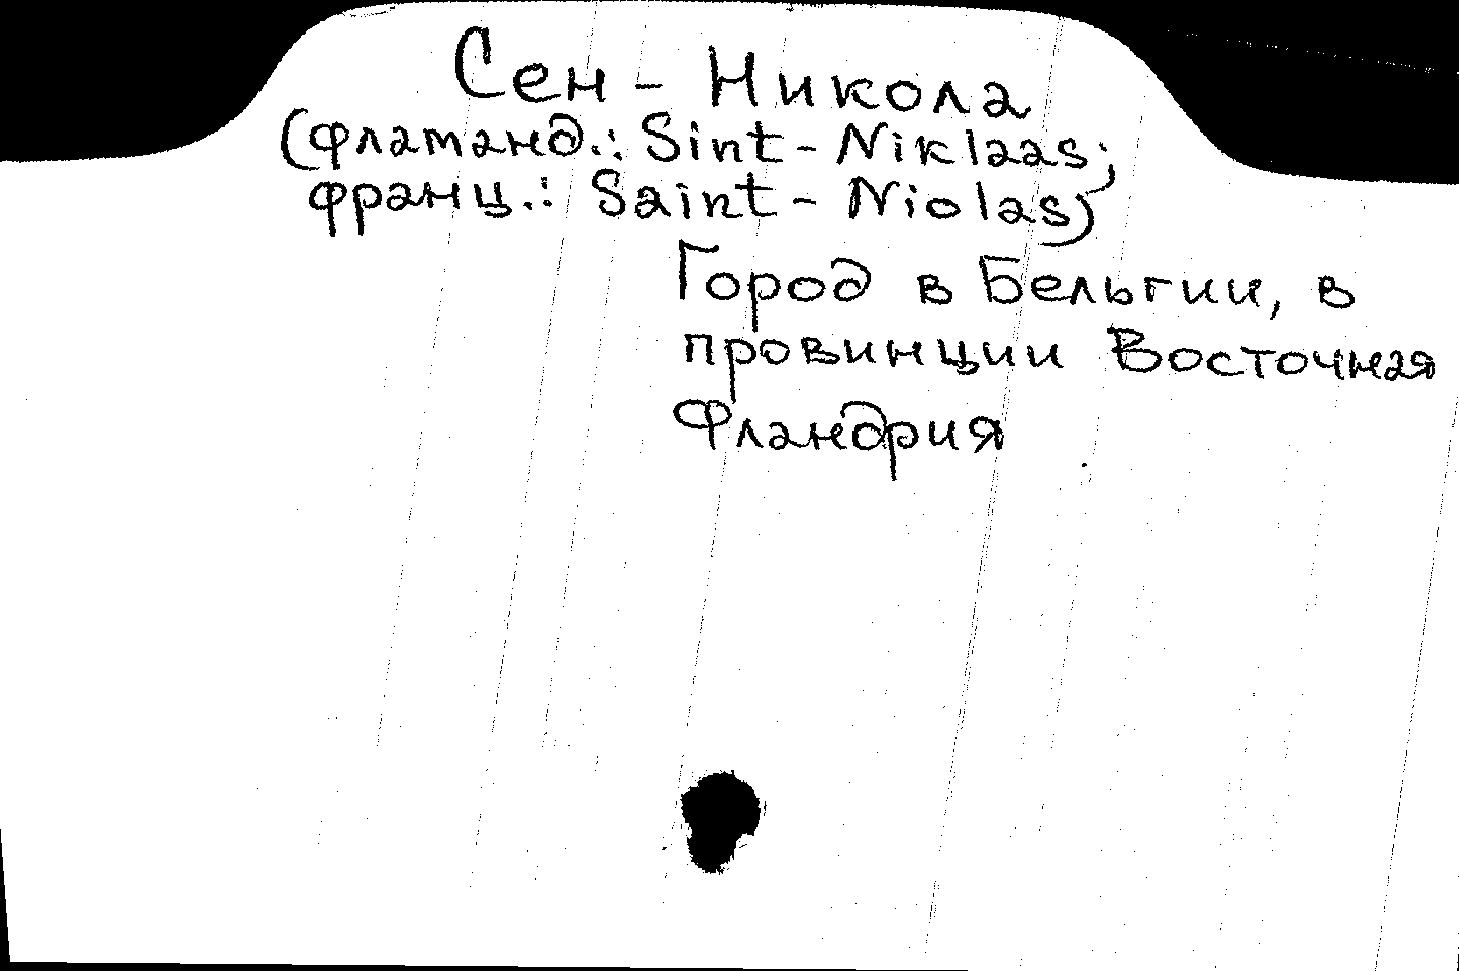 Сен - Никола
(фламанд.: Sint - Niklaas;
франц.: Saint - Niolas)
Город в Бельгии, в
провинции Восточная
Фландрия